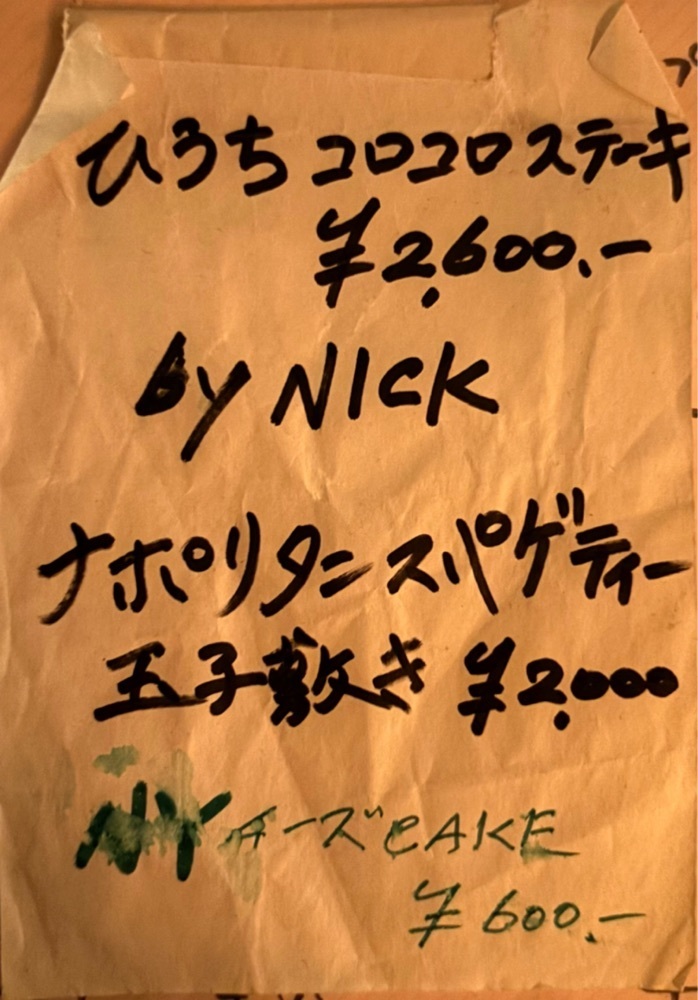 ひろち コロコロステーキ
¥2,600.-
by NICK
ナポリタン スパゲティー
玉子敷き ¥2,000
NY チーズCAKE
¥600.-